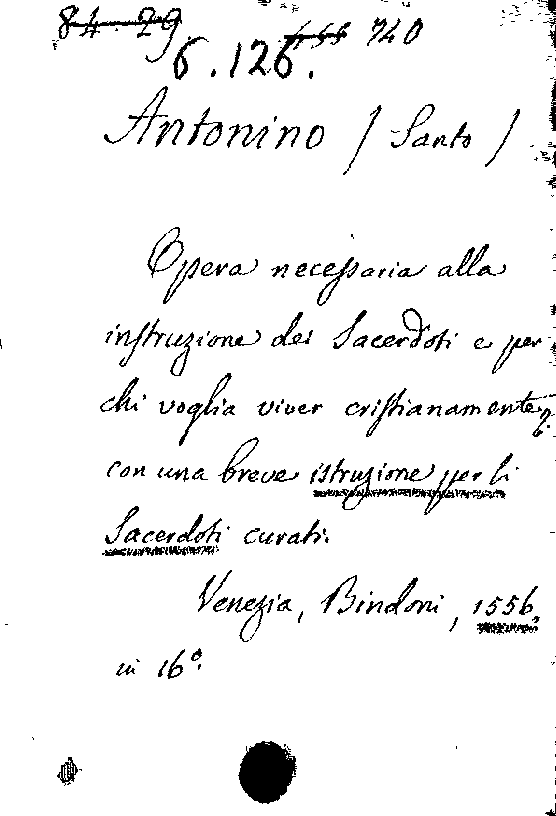 84. 29
455 740
6.126.
Antonino / Santo /
Opera necessaria alla
instruzione dei Sacerdoti e per
chi voglia viver cristianamente,
con una breve istruzione per li
Sacerdoti curati.
Venezia, Bindoni, 1556,
in 16º.